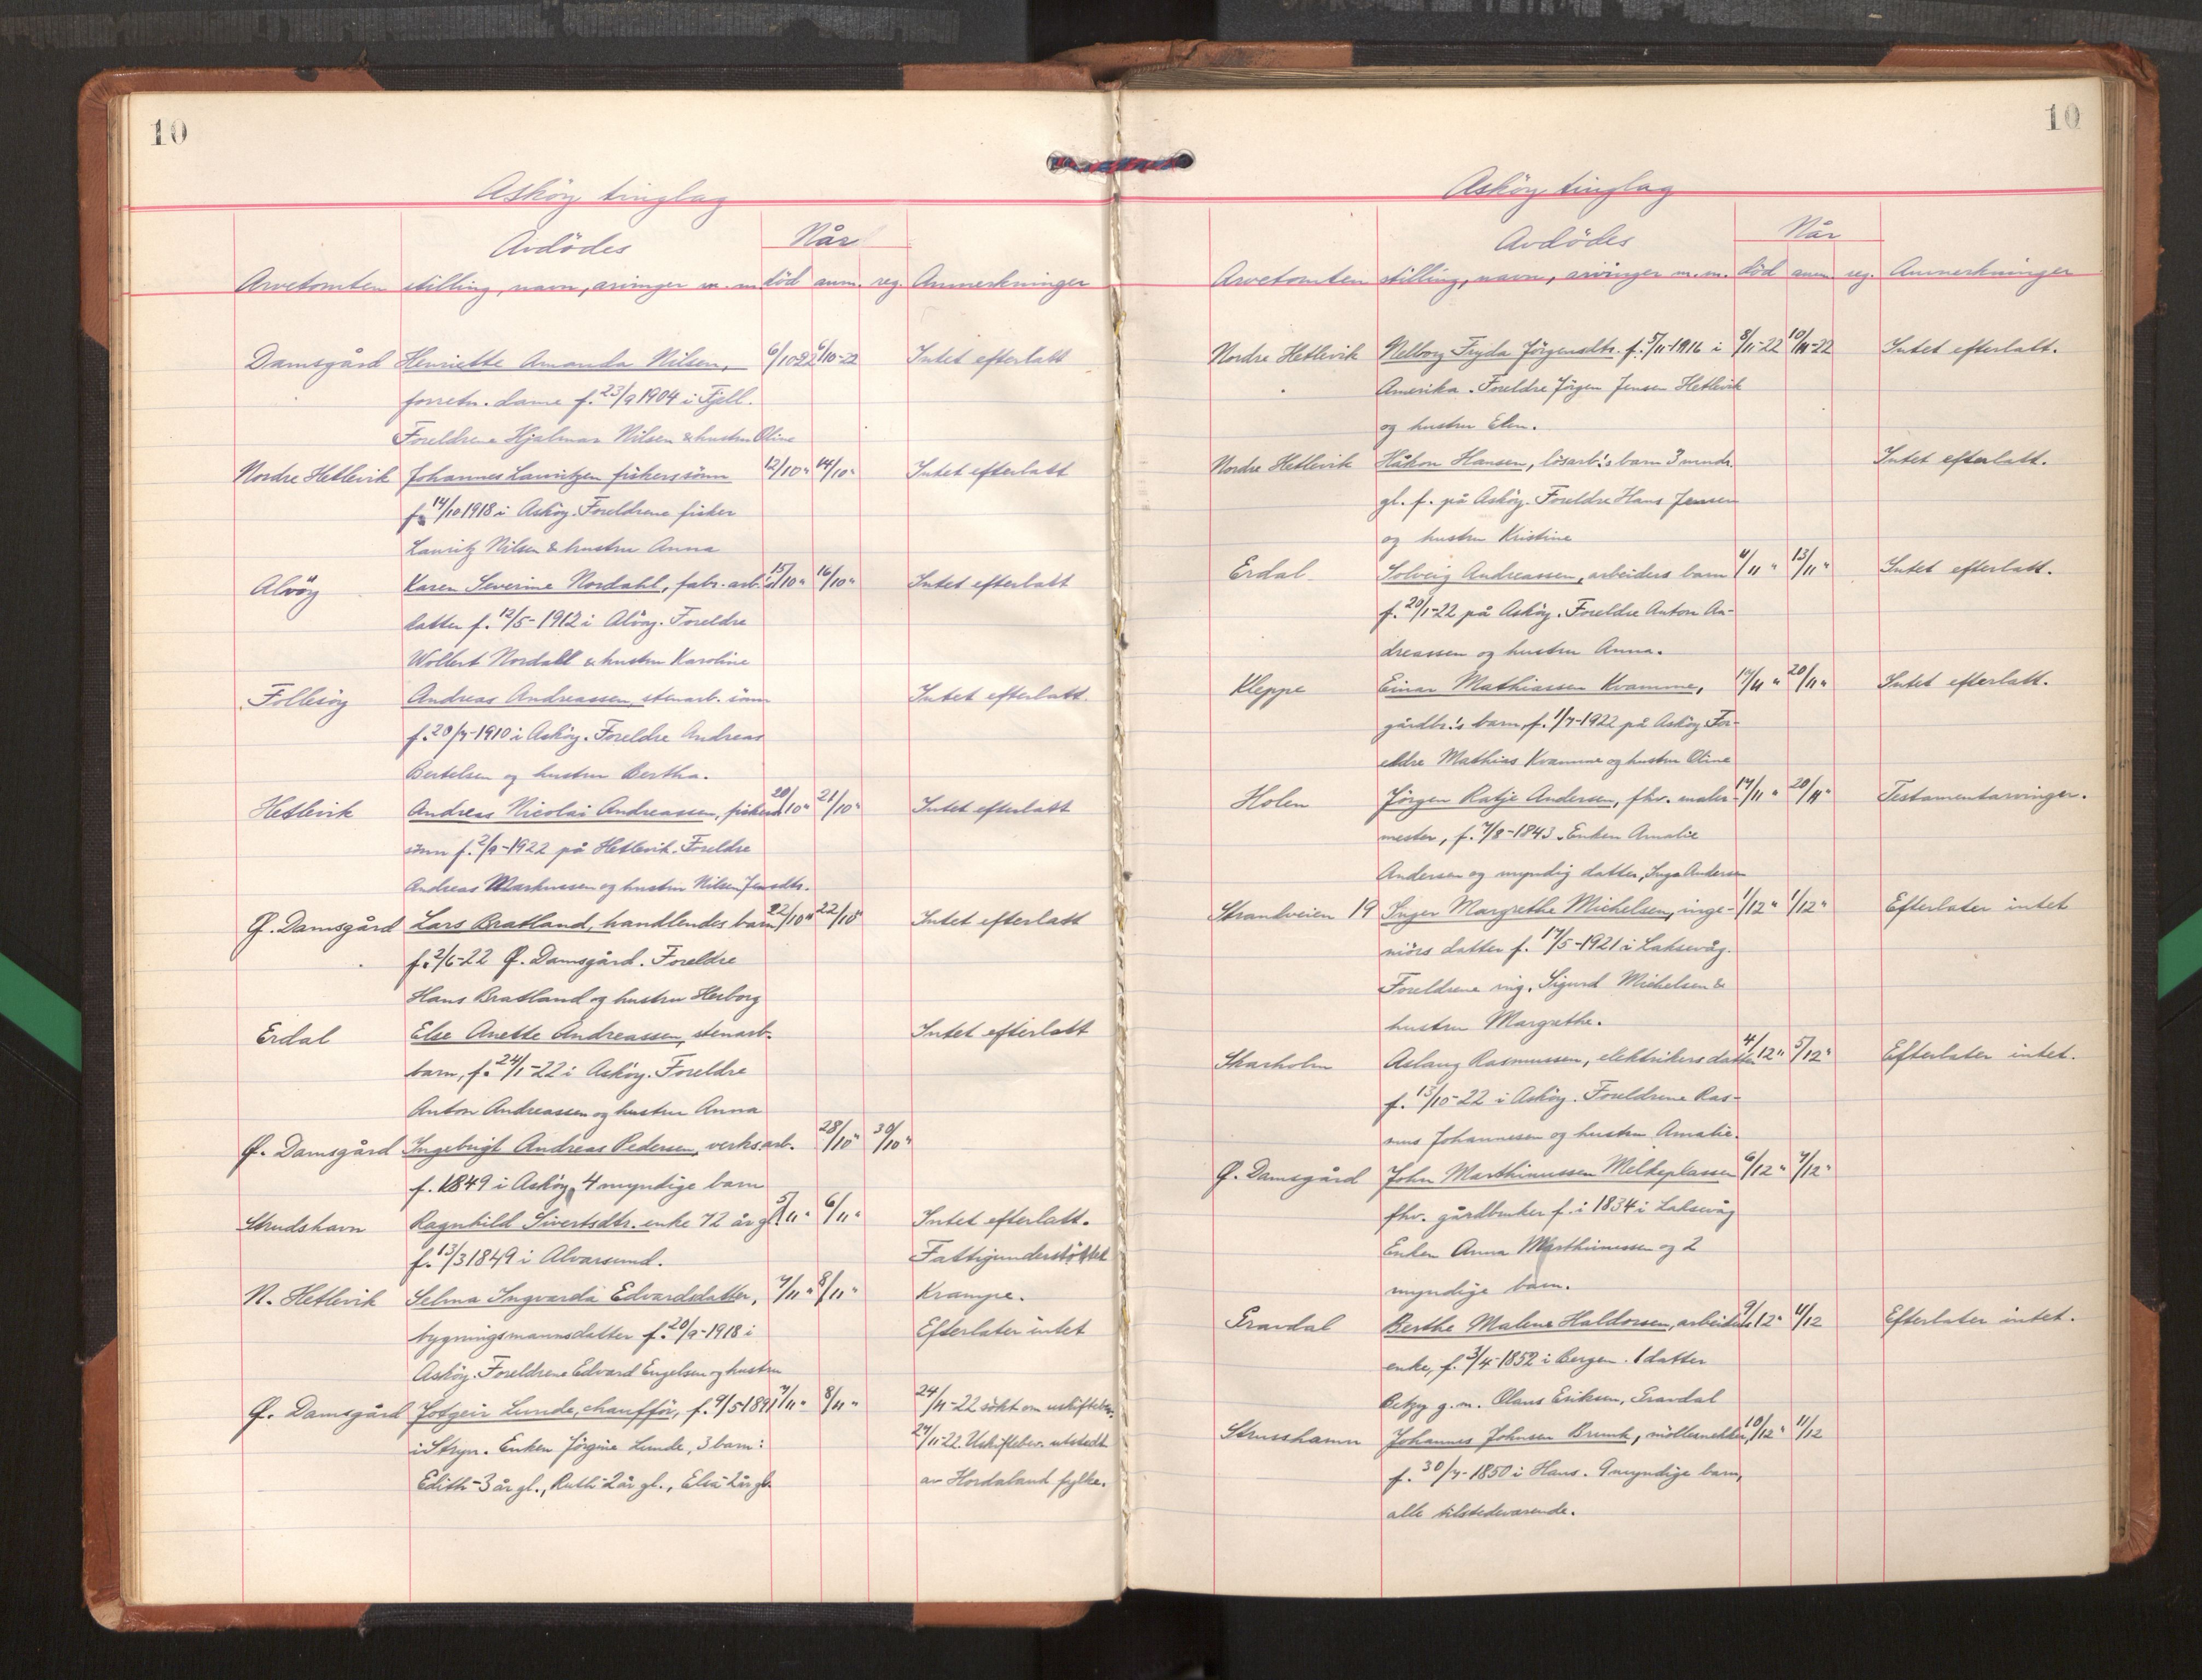 10
Asköy tinglag
Avdödes
Når
Arvetomten stilling, navn, arvinger m. m. död anm. reg. Anmerkninger
Damsgård Henriette Amanda Nilsen, 6/10-22 6/10-22 Intet efterlatt
forretn. dame f. 23/9 1904 i Fjell.
Foreldrene Hjalmar Nilsen & hustru Oline
Nordre Hetlevik Johannes Lauritzen fiskers sönn 12/10 " 14/10 " Intet efterlatt
f. 14/10 1918 i Asköy. Foreldrene fisker
Lauritz Nilsen & hustru Anna
Alvöy Karen Severine Nordahl, fabr. arb. 15/10 " 16/10 " Intet efterlatt
datter f. 12/5-1912 i Alvöy. Foreldre
Wollert Nordall & hustru Karoline
Follesöy Andreas Andreassen, stenarb. sönn Intet efterlatt.
f. 20/7-1910 i Asköy. Foreldre Andreas
Bertelsen og hustru Bertha.
Hetlevik Andreas Nicolai Andreassen, fiskers 20/10 " 21/10 " Intet efterlatt
sönn f. 2/9-1922 på Hetlevik. Foreldre
Andreas Markussen og hustru Nilsen Jensdtr.
Ø. Damsgård Lars Bratland, handlendes barn 22/10 " 22/10 " Intet efterlatt
f. 2/6-22 Ø. Damsgård. Foreldre
Hans Bratland og hustru Herborg
Erdal Else Anette Andreassen, stenarb. Intet efterlatt
barn, f. 24/1-22 i Asköy. Foreldre
Anton Andreassen og hustru Anna
Ø. Damsgård Ingebrigt Andreas Pedersen, verks.arb. 28/10 " 30/10 "
f. 1849 i Asköy, 4 myndige barn
Strudshavn Ragnhild Sivertsdtr. enke 72 år gl. 5/11 " 6/11 " Intet efterlatt.
f. 13/3 1849 i Alvarsund. Fattigunderstöttet
N. Hetlevik Selma Ingvarda Edvardsdatter, 7/11 " 8/11 " Krampe.
bygningsmannsdatter f. 20/9-1918 i Efterlater intet
Asköy. Foreldrene Edvard Engelsen og hustru
Ø. Damsgård Jotgeir Lunde, chaufför, f. 9/5-1891 7/11 " 8/11 " 24/11-22 sökt om uskiftebev.
i Stryn. Enken Jörgine Lunde, 3 barn: 24/11-22. Uskiftebev. utstedt
Edith-3 år gl., Ruth-2 år gl., Elsa-2 år gl. av Hordaland fylke.
10
Asköy tinglag
Avdödes
Når
Arvetomten stilling, navn, arvinger m. m. död anm. reg. Anmerkninger
Nordre Hetlevik Nelborg Fryda Jörgensdtr. f. 5/11-1916 i 8/11-22 10/11-22 Intet efterlatt.
Amerika. Foreldre Jörgen Jensen Hetlevik
og hustru Elen.
Nordre Hetlevik Håkon Hansen, lösarb.'s barn 3 mndr. Intet efterlatt.
gl. f. på Asköy. Foreldre Hans Jensen
og hustru Kristine
Erdal Solveig Andreassen, arbeiders barn 11/11 " 13/11 " Intet efterlatt.
f. 20/1-22 på Asköy. Foreldre Anton An-
dreassen og hustru Anna.
Kleppe Einar Mathiassen Kvamme, 17/11 " 20/11 " Intet efterlatt.
gårdbr.'s barn, f. 1/7-1922 på Asköy. For-
eldre Mathias Kvamme og hustru Oline
Holen Jörgen Ratje Andersen, fhv. maler- 17/11 " 20/11 " Testamentarvinger.
mester, f. 7/8-1843. Enken Amalie
Andersen og myndig datter, Inga Andersen
Strandveien 19 Inger Margrethe Michelsen, inge- 1/12 " 1/12 " Efterlater intet
niörs datter f. 17/5-1921 i Laksevåg.
Foreldrene ing. Sigurd Michelsen &
hustru Margrethe.
Skarholm Aslaug Rasmussen, elektrikers datter 4/12 " 5/12 " Efterlater intet.
f. 13/10-22 i Asköy. Foreldrene Ras-
mus Johannesen og hustru Amalie.
Ø. Damsgård John Marthinussen Melkeplassen 6/12 " 7/12 "
fhv. gårdbruker f. i 1834 i Laksevåg
Enken Anna Marthinussen og 2
myndige barn.
Gravdal Berthe Malene Haldorsen, arbeiders 9/12 " 11/12 Efterlater intet.
enke, f. 3/4-1852 i Bergen. 1 datter
Betzy g. m. Olaus Eriksen, Gravdal
Strusshamn Johannes Johnsen Brunk, möllersnekker, 10/12 " 11/12
f. 30/7-1850 i Haus. 9 myndige barn,
alle tilstedeværende.